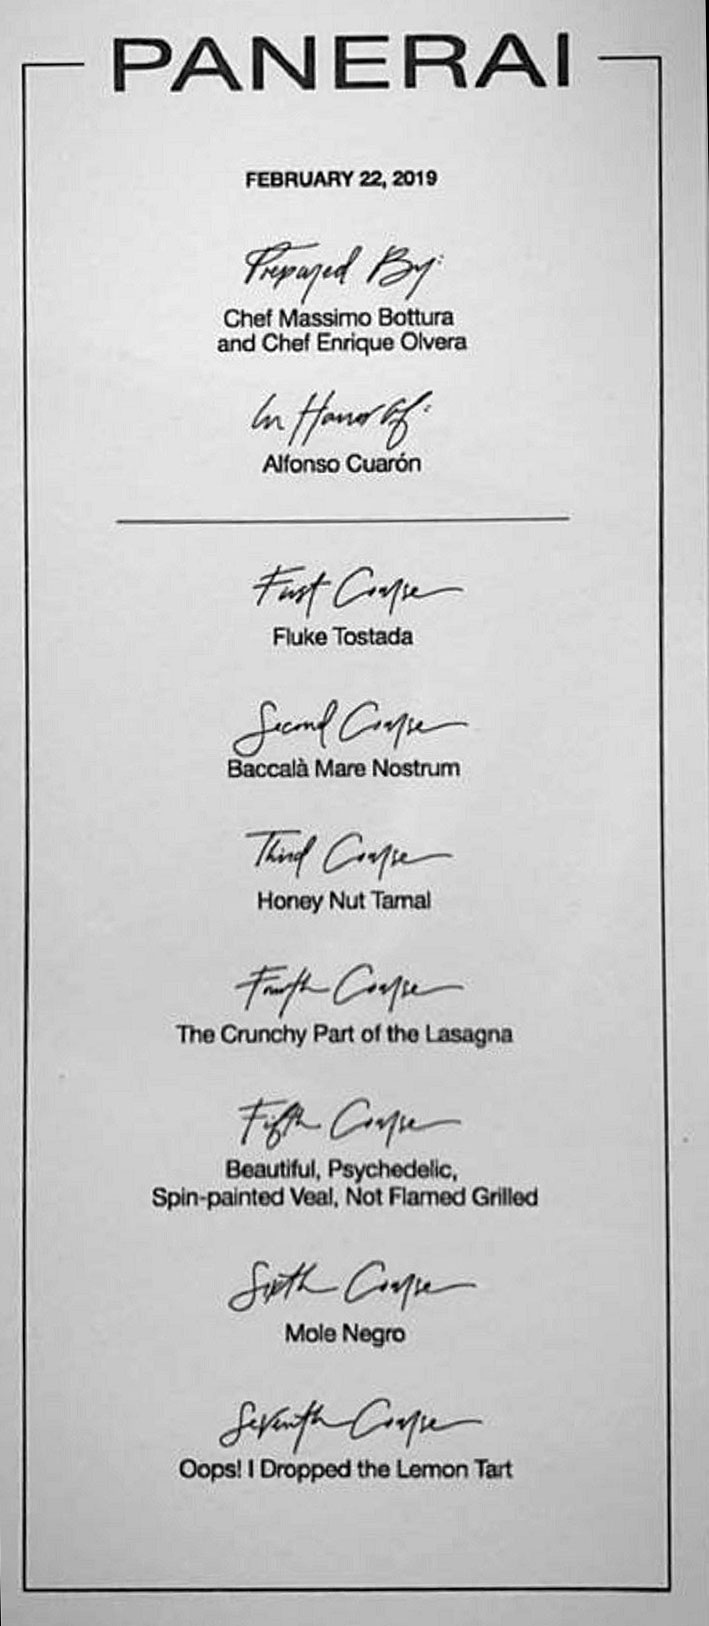 PANERAI
FEBRUARY 22, 2019
Prepared By:
Chef Massimo Bottura
and Chef Enrique Olvera
In Honor Of:
Alfonso Cuarón
First Course
Fluke Tostada
Second Course
Baccalà Mare Nostrum
Third Course
Honey Nut Tamal
Fourth Course
The Crunchy Part of the Lasagna
Fifth Course
Beautiful, Psychedelic,
Spin-painted Veal, Not Flamed Grilled
Sixth Course
Mole Negro
Seventh Course
Oops! I Dropped the Lemon Tart